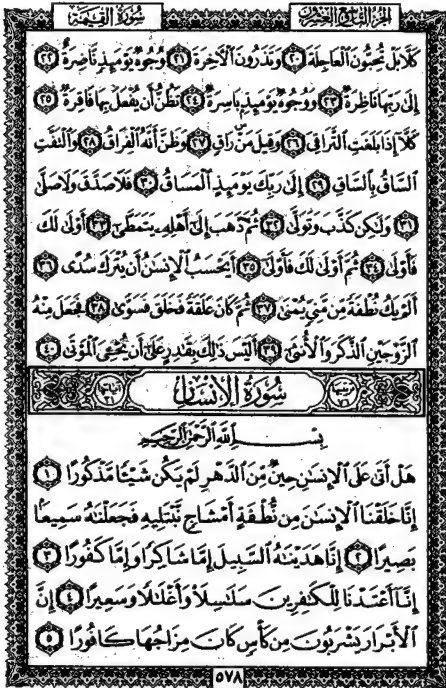 سُورَةُ القِيَامَةِ الجُزْءُ التَّاسِعُ وَالعِشْرُونَ
كَلَّا بَلْ تُحِبُّونَ ٱلْعَاجِلَةَ ٢٠ وَتَذَرُونَ ٱلْأَخِرَةَ ٢١ وُجُوهٌ يَوْمَئِذٍ نَّاضِرَةٌ ٢٢
إِلَىٰ رَبِّهَا نَاظِرَةٌ ٢٣ وَوُجُوهٌ يَوْمَئِذٍۭ بَاسِرَةٌ ٢٤ تَظُنُّ أَن يُفْعَلَ بِهَا فَاقِرَةٌ ٢٥
كَلَّآ إِذَا بَلَغَتِ ٱلتَّرَاقِىَ ٢٦ وَقِيلَ مَنْ رَاقٍ ٢٧ وَظَنَّ أَنَّهُ ٱلْفِرَاقُ ٢٨ وَٱلْتَفَّتِ
ٱلسَّاقُ بِٱلسَّاقِ ٢٩ إِلَىٰ رَبِّكَ يَوْمَئِذٍ ٱلْمَسَاقُ ٣٠ فَلَا صَدَّقَ وَلَا صَلَّىٰ
٣١ وَلَٰكِن كَذَّبَ وَتَوَلَّىٰ ٣٢ ثُمَّ ذَهَبَ إِلَىٰٓ أَهْلِهِۦ يَتَمَطَّىٰٓ ٣٣ أَوْلَىٰ لَكَ
فَأَوْلَىٰ ٣٤ ثُمَّ أَوْلَىٰ لَكَ فَأَوْلَىٰٓ ٣٥ أَيَحْسَبُ ٱلْإِنسَٰنُ أَن يُتْرَكَ سُدًى ٣٦
أَلَمْ يَكُ نُطْفَةً مِّن مَّنِىٍّ يُمْنَىٰ ٣٧ ثُمَّ كَانَ عَلَقَةً فَخَلَقَ فَسَوَّىٰ ٣٨ فَجَعَلَ مِنْهُ
ٱلزَّوْجَيْنِ ٱلذَّكَرَ وَٱلْأُنثَىٰٓ ٣٩ أَلَيْسَ ذَٰلِكَ بِقَٰدِرٍ عَلَىٰٓ أَن يُحْۦِىَ ٱلْمَوْتَىٰ ٤٠
سُورَةُ الإِنسَانِ
بِسْمِ ٱللَّهِ ٱلرَّحْمَٰنِ ٱلرَّحِيمِ
هَلْ أَتَىٰ عَلَى ٱلْإِنسَٰنِ حِينٌ مِّنَ ٱلدَّهْرِ لَمْ يَكُن شَيْـًٔا مَّذْكُورًا ١
إِنَّا خَلَقْنَا ٱلْإِنسَٰنَ مِن نُّطْفَةٍ أَمْشَاجٍ نَّبْتَلِيهِ فَجَعَلْنَٰهُ سَمِيعًۢا
بَصِيرًا ٢ إِنَّا هَدَيْنَٰهُ ٱلسَّبِيلَ إِمَّا شَاكِرًا وَإِمَّا كَفُورًا ٣
إِنَّآ أَعْتَدْنَا لِلْكَٰفِرِينَ سَلَٰسِلَا۟ وَأَغْلَٰلًا وَسَعِيرًا ٤ إِنَّ
ٱلْأَبْرَارَ يَشْرَبُونَ مِن كَأْسٍ كَانَ مِزَاجُهَا كَافُورًا ٥
٥٧٨